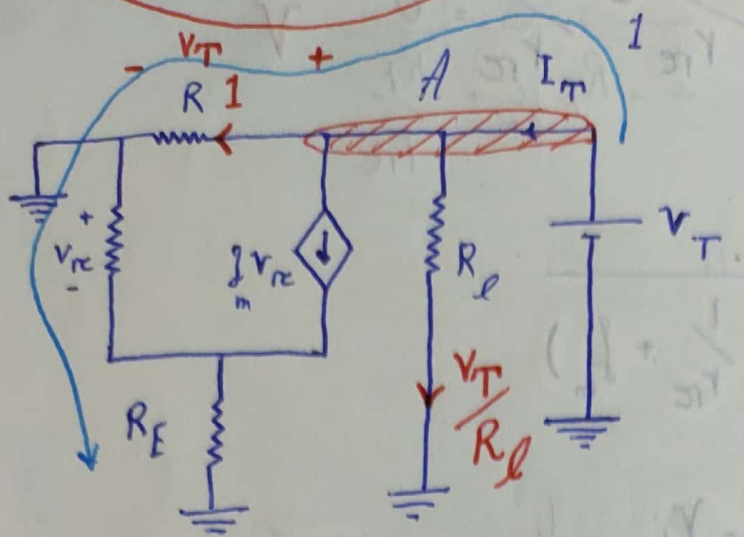 1
- V_T +
R 1
A
I_T
+
V_π
-
g_m V_π
R_l
V_T
R_E
V_T/R_l